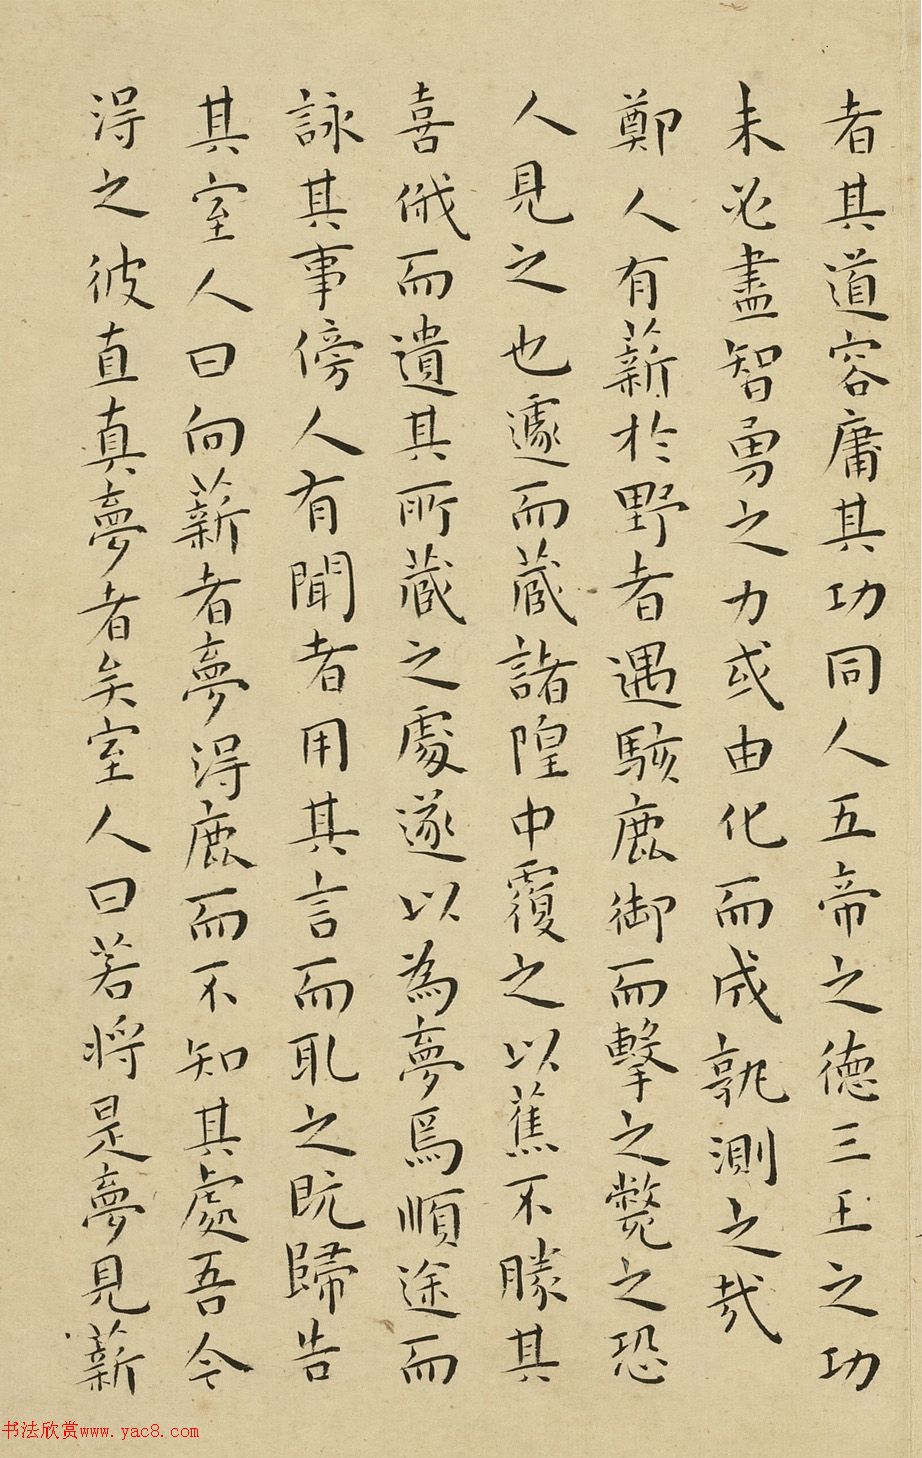 者其道容庸其功同人五帝之德三王之功
未必盡智勇之力或由化而成孰測之哉
鄭人有薪於野者遇駭鹿御而擊之斃之恐
人見之也遽而藏諸隍中覆之以蕉不勝其
喜俄而遺其所藏之處遂以為夢焉順途而
詠其事傍人有聞者用其言而取之既歸告
其室人曰向薪者夢得鹿而不知其處吾今
得之彼直真夢者矣室人曰若將是夢見薪
书法欣赏www.yac8.com